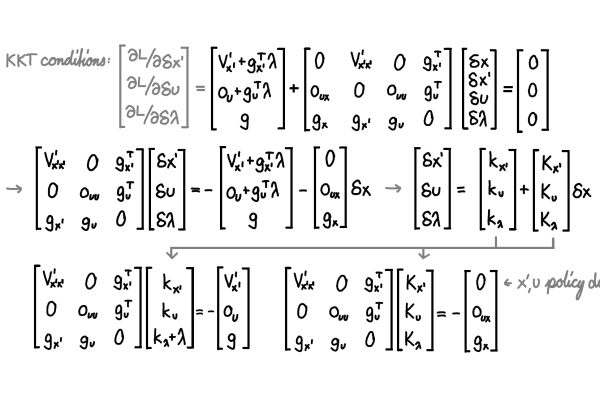 KKT conditions: [∂L/∂δx' ; ∂L/∂δu ; ∂L/∂δλ] = [V'ₓ' + gₓ'ᵀλ ; oᵤ + gᵤᵀλ ; g] + [0 V'ₓ'ₓ' 0 gₓ'ᵀ ; oᵤₓ 0 oᵤᵤ gᵤᵀ ; gₓ gₓ' gᵤ 0] [δx ; δx' ; δu ; δλ] = [0 ; 0 ; 0]
→ [V'ₓ'ₓ' 0 gₓ'ᵀ ; 0 oᵤᵤ gᵤᵀ ; gₓ' gᵤ 0] [δx' ; δu ; δλ] = - [V'ₓ' + gₓ'ᵀλ ; oᵤ + gᵤᵀλ ; g] - [0 ; oᵤₓ ; gₓ] δx → [δx' ; δu ; δλ] = [kₓ' ; kᵤ ; k_λ] + [Kₓ' ; Kᵤ ; K_λ] δx
[V'ₓ'ₓ' 0 gₓ'ᵀ ; 0 oᵤᵤ gᵤᵀ ; gₓ' gᵤ 0] [kₓ' ; kᵤ ; k_λ+λ] = - [V'ₓ' ; oᵤ ; g] [V'ₓ'ₓ' 0 gₓ'ᵀ ; 0 oᵤᵤ gᵤᵀ ; gₓ' gᵤ 0] [Kₓ' ; Kᵤ ; K_λ] = - [0 ; oᵤₓ ; gₓ] ← x',u policy